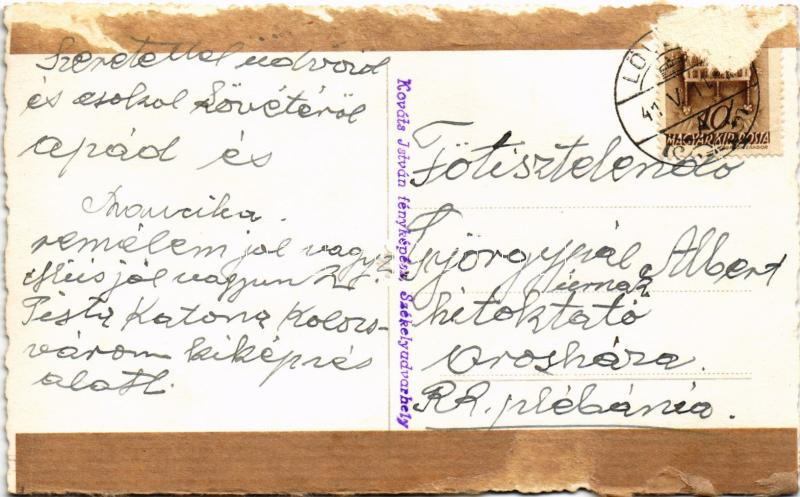 Szeretettel üdvöid
és csokol Lövétéröl
apád és
remélem jol vagy
Mi is jol vagyunk
Pista Katona Kolozs-
várom kiképzés
alatt.
Kováts István fényképész, Székelyudvarhely
LÖV
41 V
10f
MAGYAR KIR. POSTA
Fötisztelendö
Györgypál Albert
hitoktató
Orosháza.
RK. plébánia.